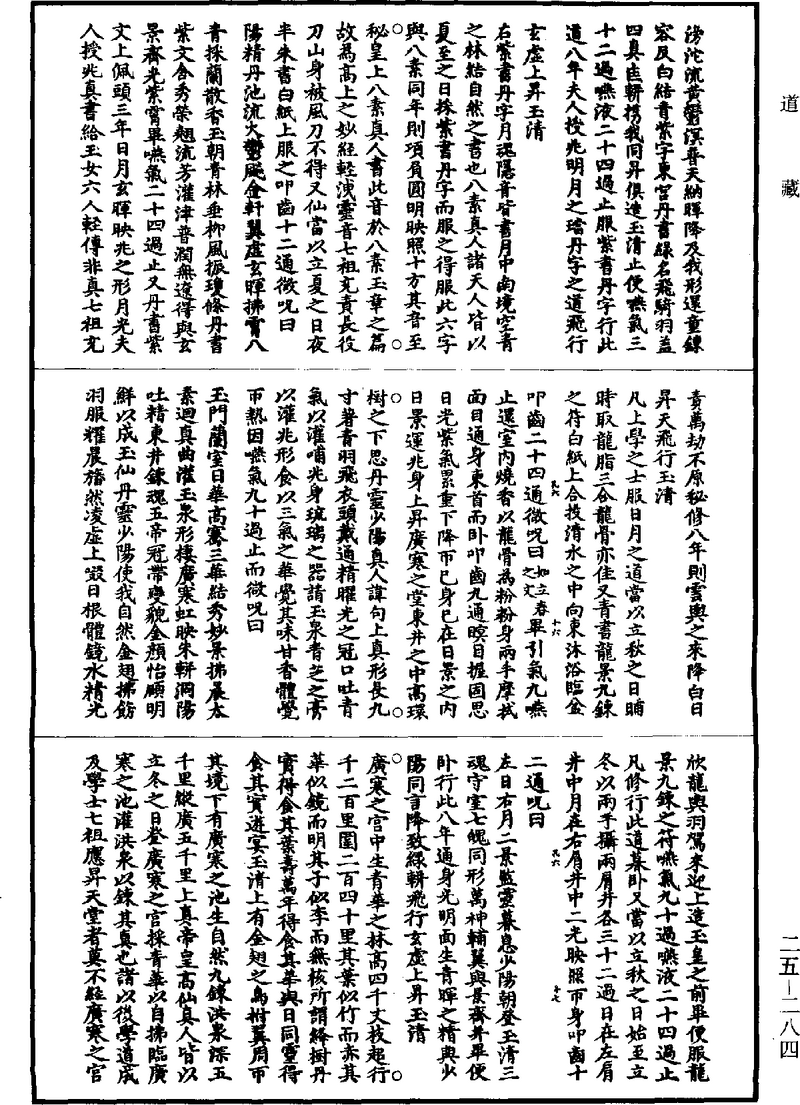 道藏
滂沱流黄鬱溟普天納暉降及我形還童鍊
容反白結青紫字東宮丹書綠名飛騎羽蓋
四真齊軿攜我同昇俱造玉清止便嚥氣三
十二過嚥液二十四過止服紫書丹字行此
道八年夫人授兆明月之璫丹字之道飛行
玄虛上昇玉清
右紫書丹字月魂隱音皆書月中南境空青
之林結自然之書也八素真人諸天人皆以
夏至之日採紫書丹字而服之得服此六字
與八素同年則項負圓明映照十方其音至
秘皇上八素真人書此音於八素玉章之篇
故為高上之妙經輕洩靈音七祖充責長役
刀山身被風刀不得又仙當以立夏之日夜
半朱書白紙上服之叩齒十二通微呪曰
陽精丹池流火鬱飈金軒翼虛玄暉拂霄八
青採蘭散香玉朝青林垂柳風振瓊條丹書
紫文含秀榮翹流芳灌津普潤無遼得與玄
景齊光紫霄畢嚥氣二十四過止又丹書紫
文上佩頭三年日月玄暉映兆之形月光夫
人授兆真書給玉女六人輕傳非真七祖充
責萬劫不原秘修八年則雲輿之來降白日
昇天飛行玉清
凡上學之士服日月之道當以立秋之日晡
時取龍脂三合龍骨亦佳又青書龍景九鍊
之符白紙上合投清水之中向東沐浴臨金
叩齒二十四通微呪曰如立春之文畢引氣九嚥
止還室內燒香以龍骨為粉粉身兩手摩拭
面目通身東首而卧叩齒九通瞑目握固思
日光紫氣累重下降帀已身已在日景之內
日景運兆身上昇廣寒之堂東井之中高環
樹之下思丹靈少陽真人諱句上真形長九
寸著青羽飛衣頭戴通精曜光之冠口吐青
氣以灌哺兆身琉璃之器請玉泉青芝之膏
以灌兆形食以三氣之華覺其味甘香體覺
帀熱因嚥氣九十過止而微呪曰
玉門蘭室日華高騫三華結秀妙景拂晨太
素迴真曲灌玉泉形棲廣寒虹映朱軿洞陽
吐精東井鍊魂五帝冠帶變貌金顏怡願明
鮮以成玉仙丹靈少陽使我自然金翅拂飭
羽服耀晨旛然凌虛上啜日根體鏡水精光
欣龍輿羽駕來迎上造玉皇之前畢便服龍
景九鍊之符嚥氣九十過嚥液二十四過止
凡修行此道暮卧又當以立秋之日始至立
冬以兩手攝兩肩井各三十二過日在左肩
井中月在右肩井中二光映照帀身叩齒十
二通呪曰
左日右月二景監靈暮息少陽朝登玉清三
魂守室七魄同形萬神輔翼與景齊并畢便
卧行此八年通身光明面生青暉之精與少
陽同言降致綠軿飛行玄虛上昇玉清
廣寒之宮中生青華之林高四千丈枝起行
千二百里圍二百四十里其葉似竹而赤其
華似鏡而明其子似李而無核所謂絳樹丹
實得食其葉壽萬年得食其華與日同靈得
食其實遊宴玉清上有金翅之鳥柎翼周帀
其境下有廣寒之池生自然九鍊洪泉深五
千里縱廣五千里上真帝皇高仙真人皆以
立冬之日登廣寒之宮採青華以自拂臨廣
寒之池灌洪泉以鍊其真也諸以後學道成
及學士七祖應昇天堂者莫不經廣寒之宮
二五—二八四